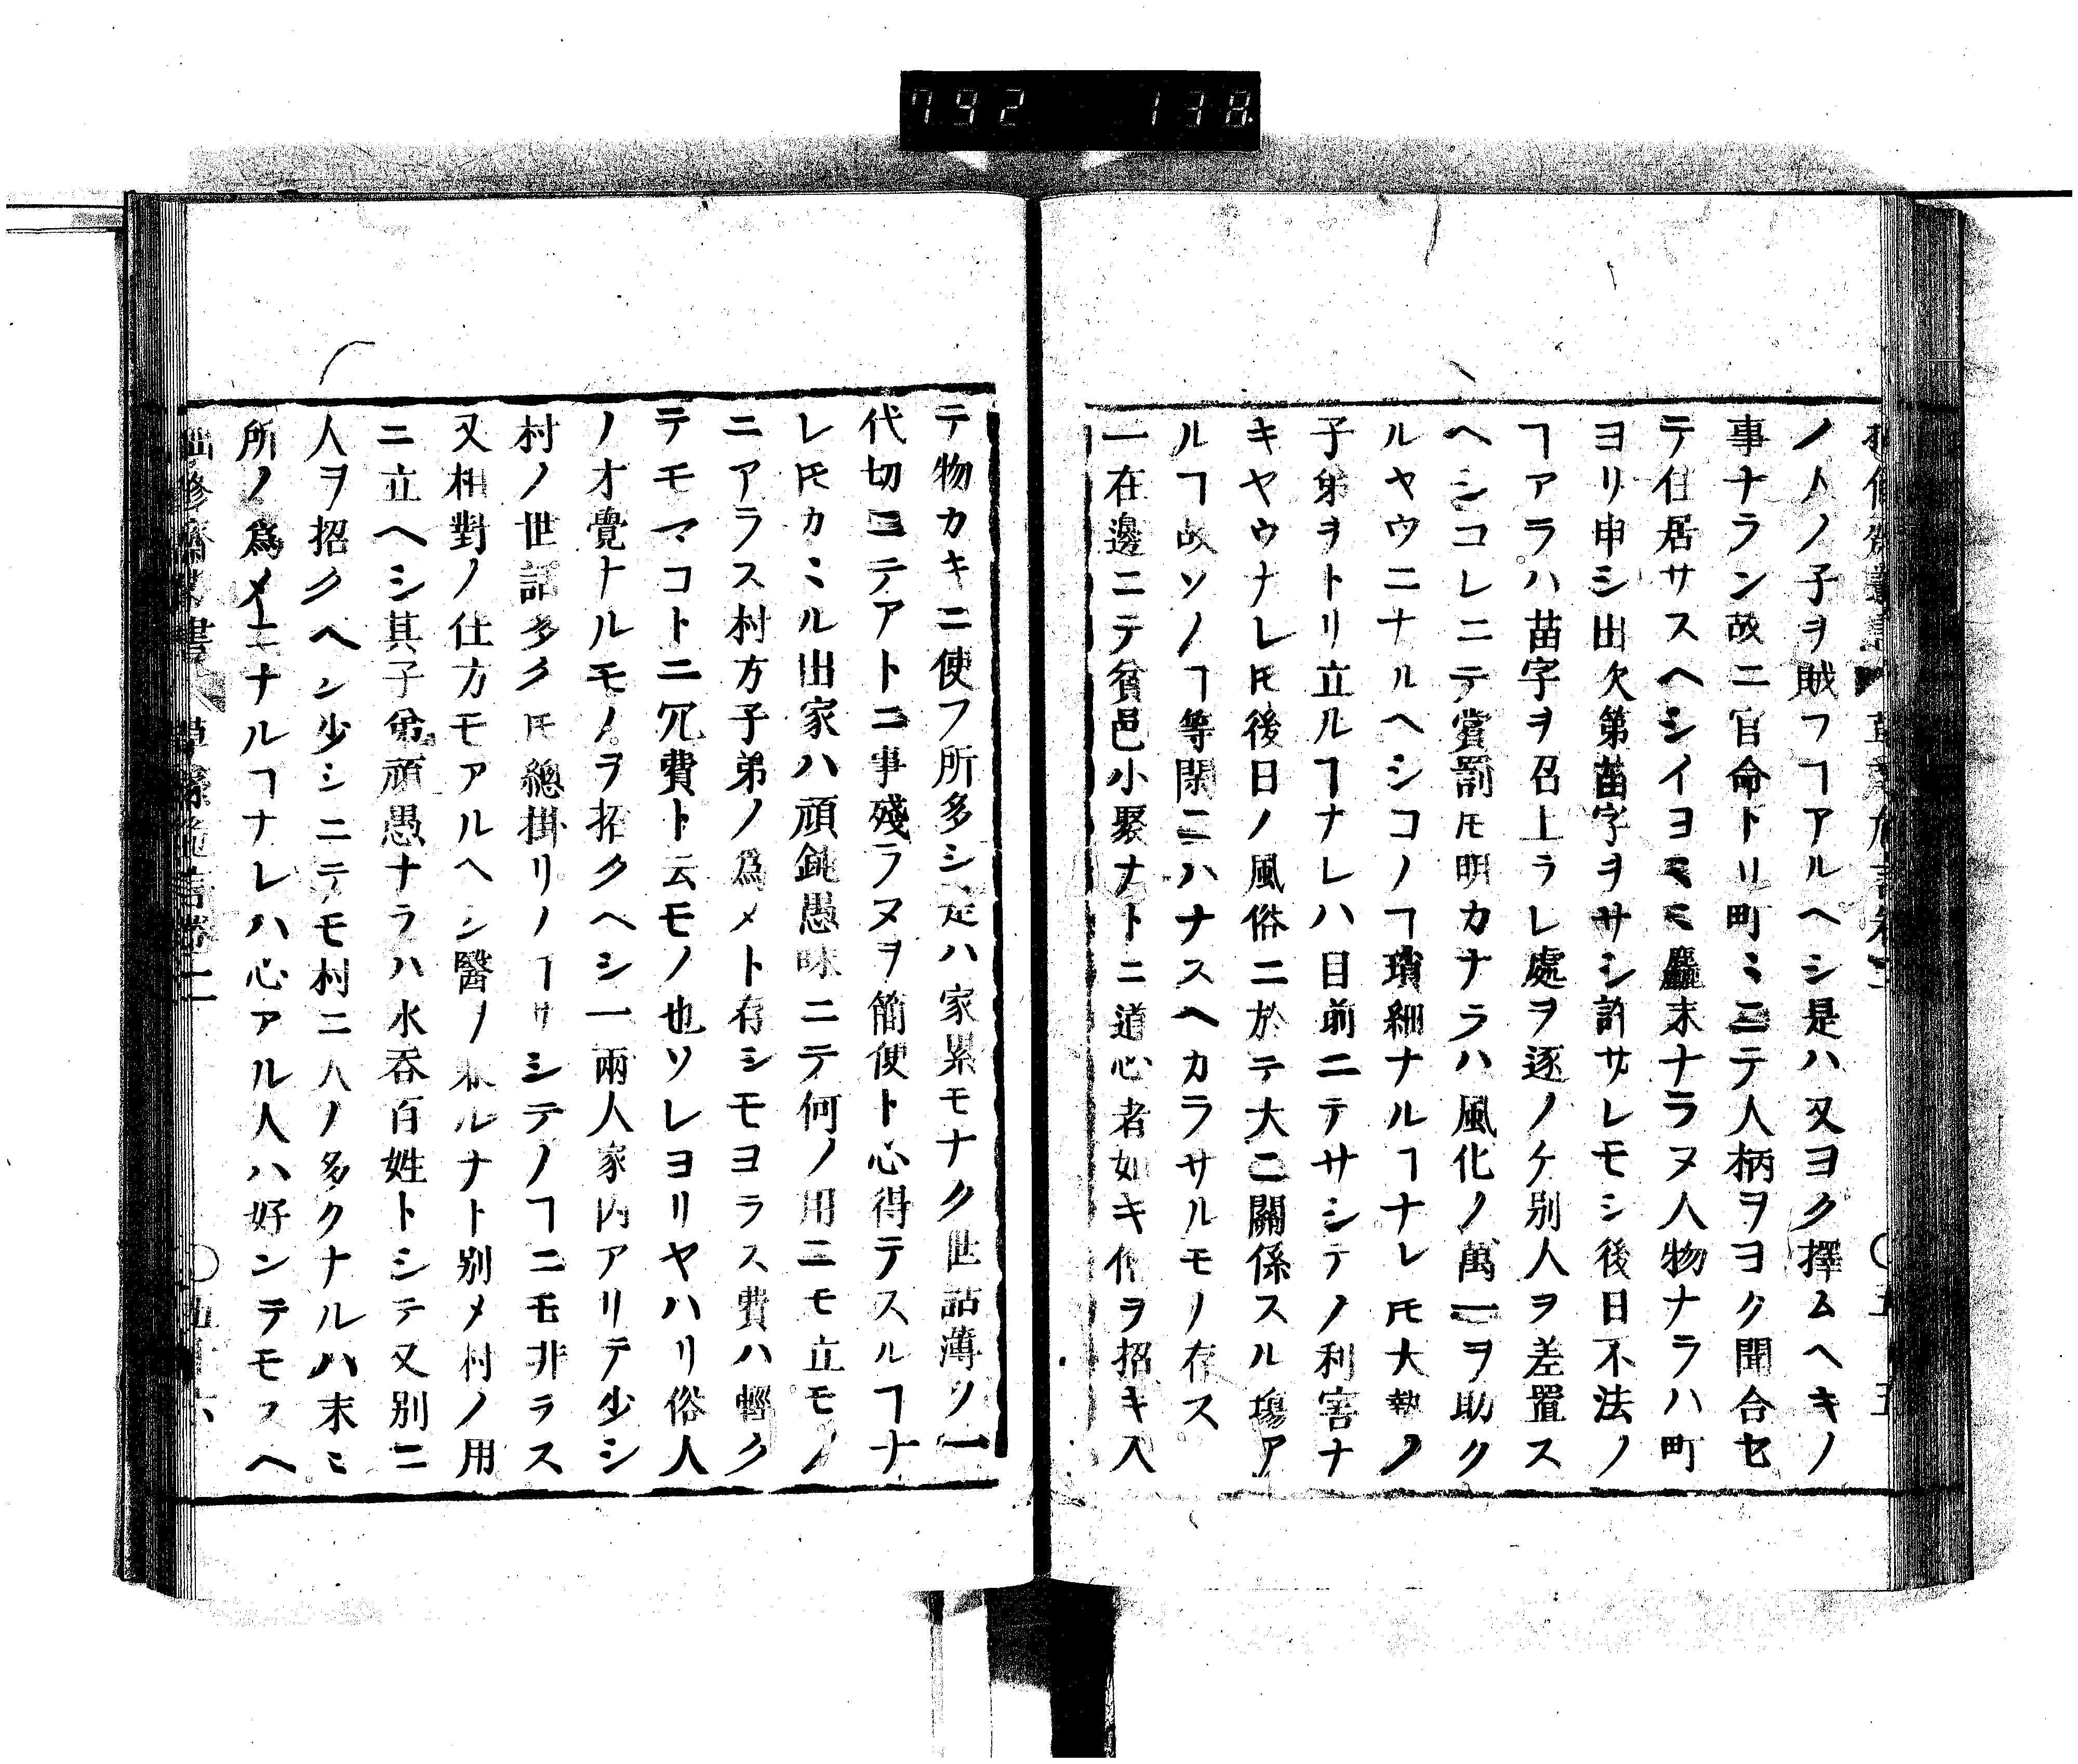 792 138
ノ人ノ子ヲ賊フヿアルヘシ是ハ又ヨク擇ムヘキノ
事ナラン故ニ官命トリ町ミニテ人柄ヲヨク聞合セ
テ住居サスヘシイヨミモ麤末ナラヌ人物ナラハ町
ヨリ申シ出欠第苗字ヲサシ許サレモシ後日不法ノ
ヿアラハ苗字ヲ召上ラレ處ヲ逐ノケ別人ヲ差置ス
ヘシコレニテ賞罰𪜈明カナラハ風化ノ萬一ヲ助ク
ルヤウニナルヘシコノヿ瑣細ナルヿナレ𪜈大勢ノ
子弟ヲトリ立ルヿナレハ目前ニテサシテノ利害ナ
キヤウナレ𪜈後日ノ風俗ニ於テ大ニ關係スル塲ア
ルヿ故ソノヿ等閑ニハナスヘカラサルモノ存ス
一在邊ニテ貧邑小聚ナトニ道心者如キ僧ヲ招キ入
テ物カキニ使フ所多シ是ハ家累モナク世話薄ソ一
代切ニテアトニ事殘ラヌヲ簡便ト心得テスルヿナ
レ𪜈カミル出家ハ頑鈍愚昧ニテ何ノ用ニモ立モノ
ニアラス村方子弟ノ爲メト存シモヨラス費ハ輕ク
テモマコトニ冗費ト云モノ也ソレヨリヤハリ俗人
ノ才覺ナルモノヲ招クヘシ一兩人家内アリテ少シ
村ノ世話多ク𪜈總掛リノヿサシテノヿニモ非ラス
又相對ノ仕方モアルヘシ醫ノ来ルナト別メ村ノ用
ニ立ヘシ其子弟頑愚ナラハ水呑百姓トシテ又別ニ
人ヲ招クヘシ少シニテモ村ニ人ノ多クナルハ末ミ
所ノ爲メニナルヿナレハ心アル人ハ好ンテモスヘ
拙修齋叢書 草茅危言卷二 〇五十六